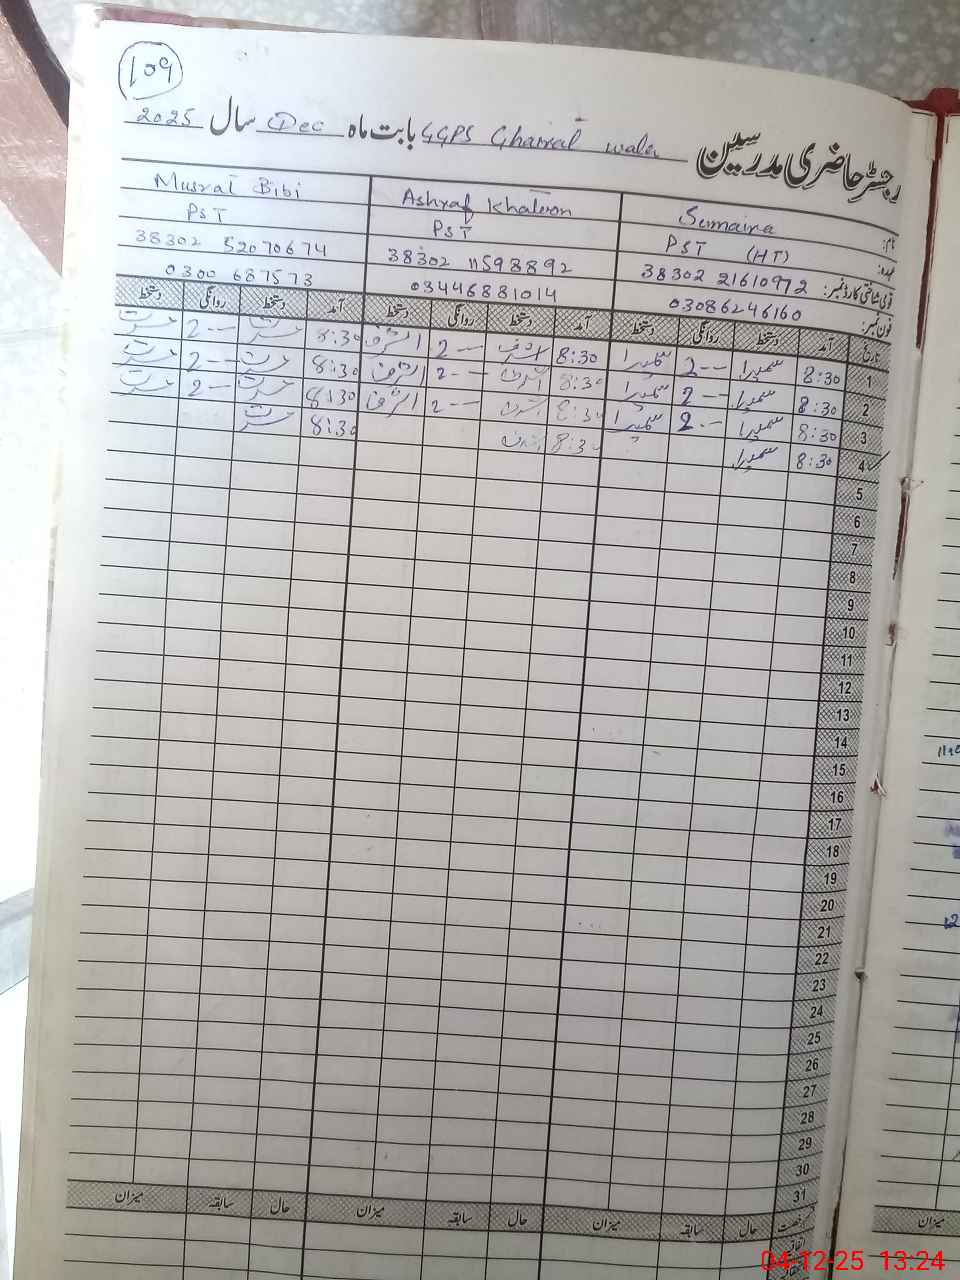 109
رجسٹر حاضری مدرسین GGPS Gharral wala بابت ماہ Dec سال 2025
نام: Sumaira Ashraf Khatoon Musrat Bibi
عہدہ: PST (HT) PST PST
قومی شناختی کارڈ نمبر: 38302 21610972 38302 11598892 38302 52070674
فون نمبر: 03086246160 03446881014 0300 687573
تاریخ آمد دستخط روانگی دستخط آمد دستخط روانگی دستخط آمد دستخط روانگی دستخط
1 8:30 سمیرا 2-- سمیرا 8:30 اشرف 2-- اشرف 8:30 مسرت 2-- مسرت
2 8:30 سمیرا 2-- سمیرا 8:30 اشرف 2-- اشرف 8:30 مسرت 2-- مسرت
3 8:30 سمیرا 2-- سمیرا 8:30 اشرف 2-- اشرف 8:30 مسرت 2-- مسرت
4 8:30 سمیرا 8:30 اشرف 8:30 مسرت
5
6
7
8
9
10
11
12
13
14
15
16
17
18
19
20
21
22
23
24
25
26
27
28
29
30
31
رخصت حال سابقہ میزان حال سابقہ میزان حال سابقہ میزان
اتفاقیہ
میزان
04-12-25 13:24